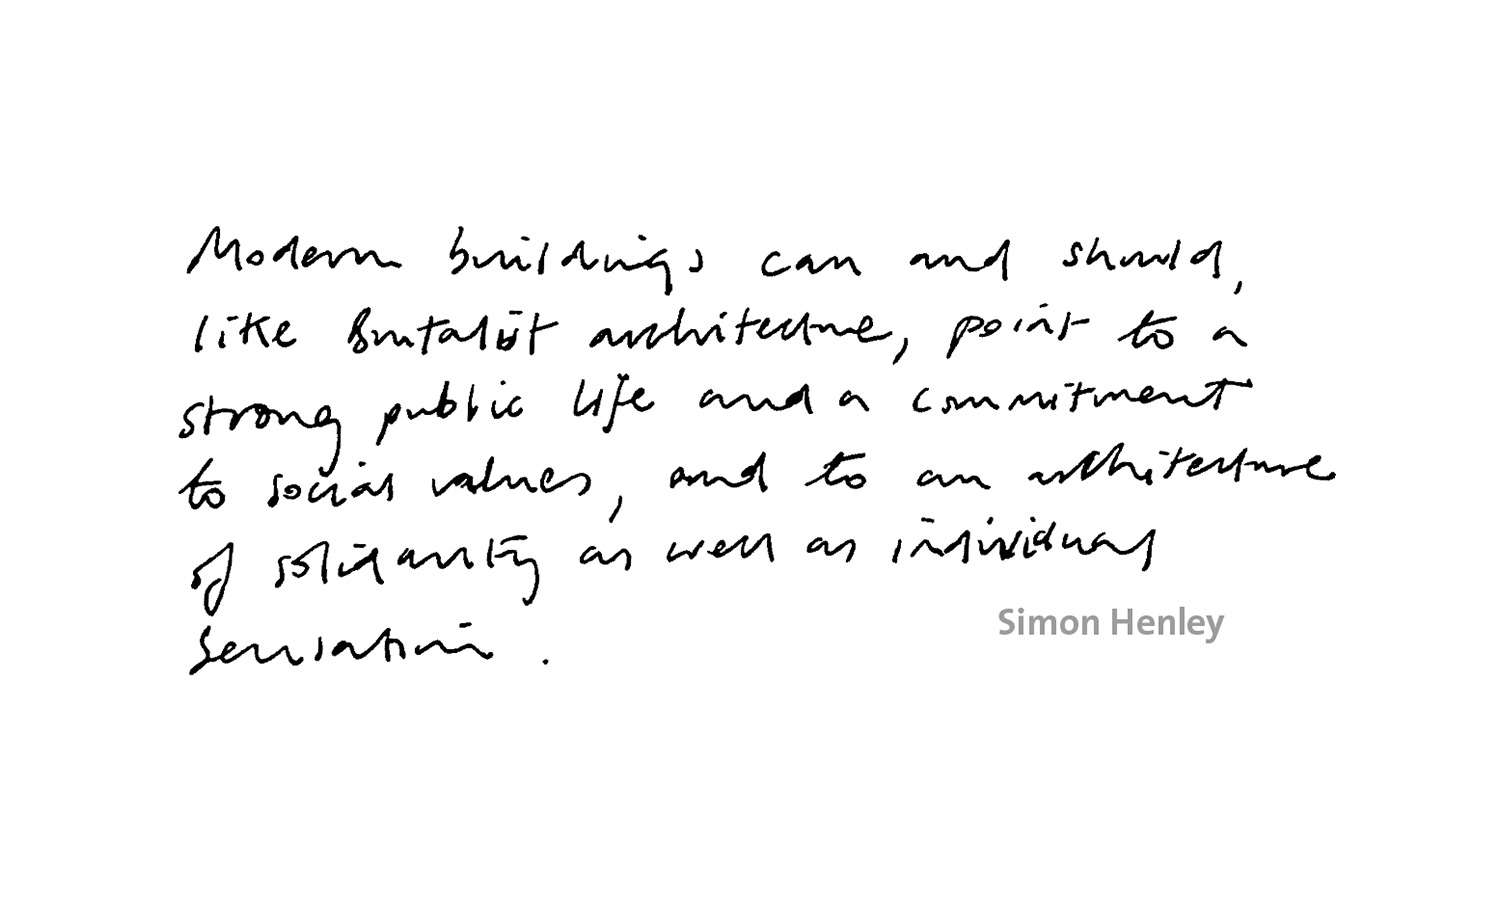 Modern buildings can and should,
like Brutalist architecture, point to a
strong public life and a commitment
to social values, and to an architecture
of solidarity as well as individual
sensation.
Simon Henley